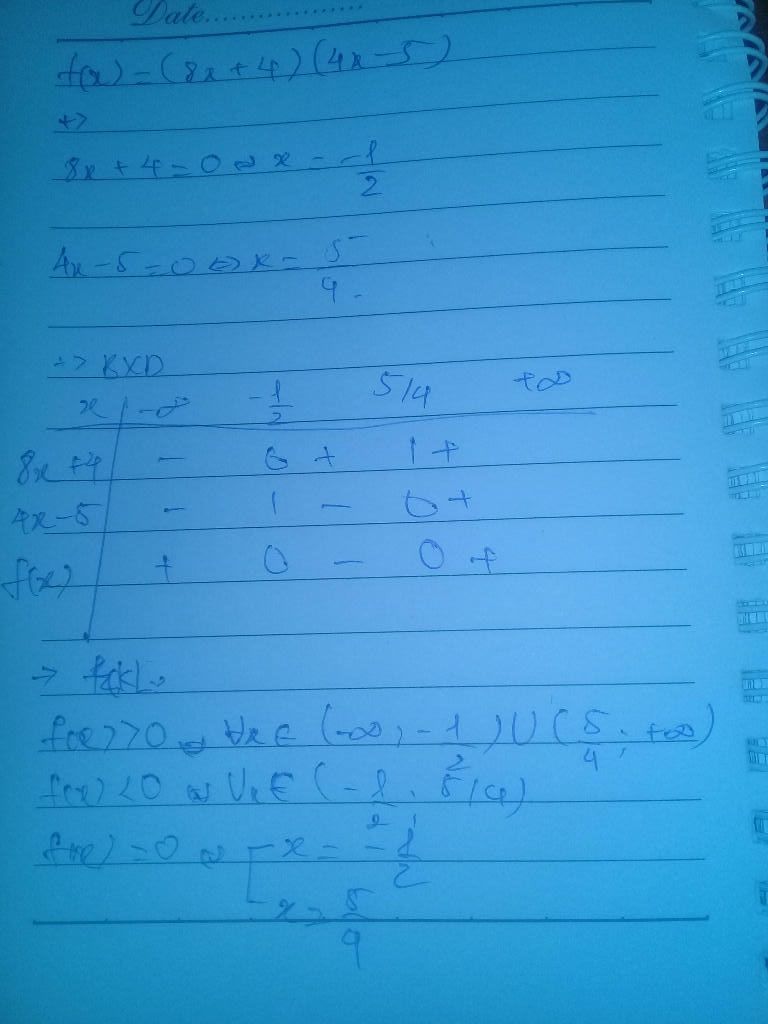 Date....................
f(x) = (8x + 4) (4x - 5)
+>
8x + 4 = 0 ⇔ x = -1/2
4x - 5 = 0 ⇔ x = 5/4
-> BXD
x | -∞ -1/2 5/4 +∞
8x +4 | - 0 + | +
4x - 5 | - | - 0 +
f(x) | + 0 - 0 +
-> KL
f(x) > 0 ⇔ ∀x ∈ (-∞; -1/2) U (5/4; +∞)
f(x) < 0 ⇔ ∀x ∈ (-1/2; 5/4)
f(x) = 0 ⇔ [ x = -1/2
x = 5/4